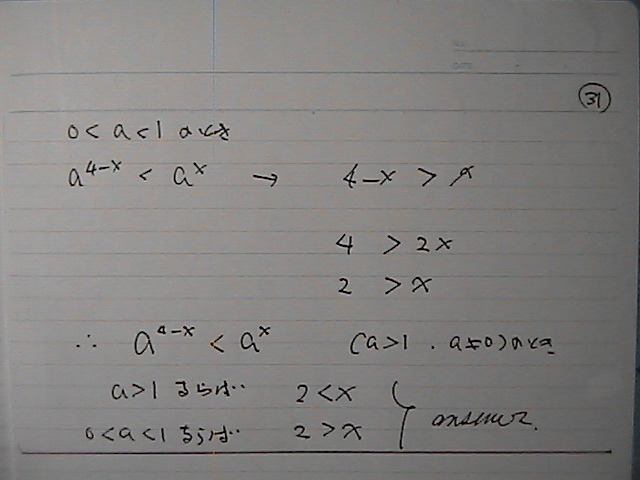 ㉛
0 < a < 1 のとき
a^{4-x} < a^x → 4-x > x
4 > 2x
2 > x
∴ a^{4-x} < a^x (a>1 . a≠0)のとき
a>1 ならば 2<x
0<a<1 ならば 2>x
answer.